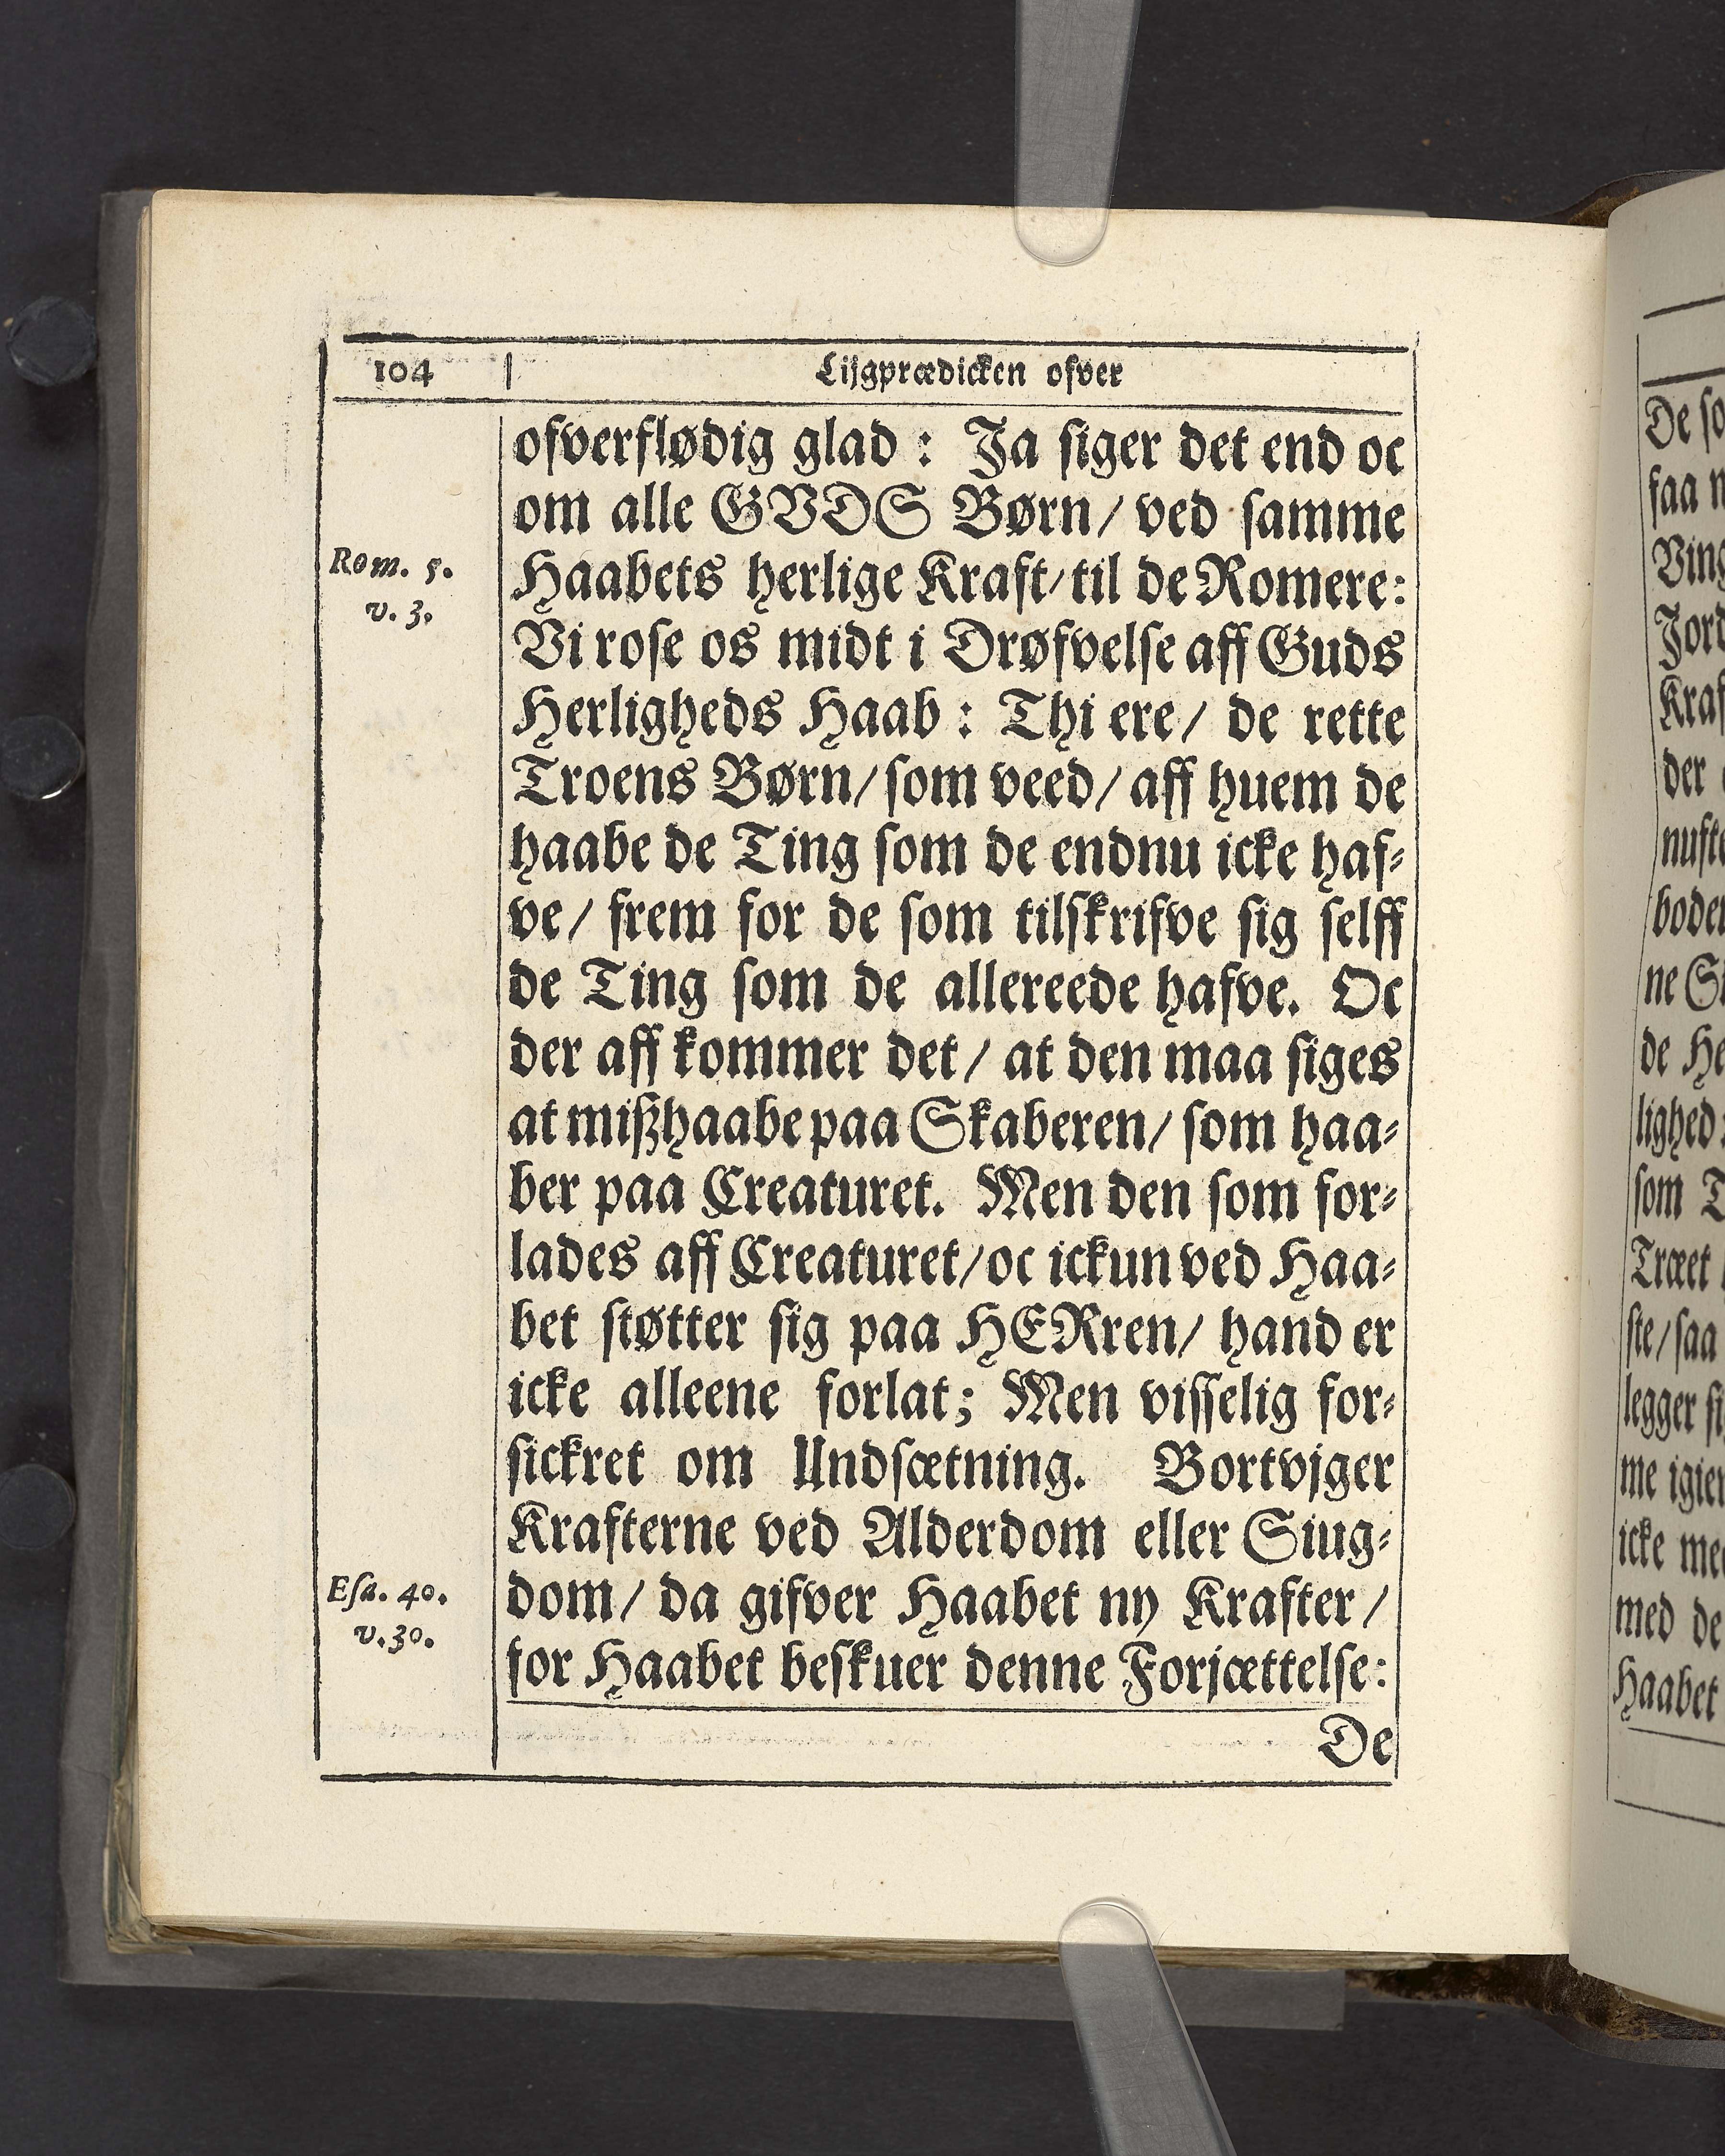 104
Lijgprædicken ofver
ofverflødig glad : Ja siger det end oc
om alle GVDS Børn / ved samme
Rom. 5.
v. 3.
Haabets herlige Kraft / til de Romere:
Vi rose os midt i Drøfvelse aff Guds
Herligheds Haab : Thi ere / de rette
Troens Børn / som veed / aff huem de
haabe de Ting som de endnu icke haf-
ve / frem for de som tilskrifve sig selff
de Ting som de allereede hafve. Oc
der aff kommer det / at den maa siges
at mißhaabe paa Skaberen / som haa-
ber paa Creaturet. Men den som for-
lades aff Creaturet / oc ickun ved Haa-
bet støtter sig paa HERren / hand er
icke alleene forlat; Men visselig for-
sickret om Undsætning. Bortvjger
Krafterne ved Alderdom eller Siug-
Esa. 40.
v. 30.
dom / da gifver Haabet ny Krafter /
for Haabet beskuer denne Forjættelse:
De
De so
faa n
Ving
Jord
Kraf
der
nufte
boden
ne Si
de He
lighed:
som T
Træet
ste / saa
legger si
me igien
icke med
med de
Haabet